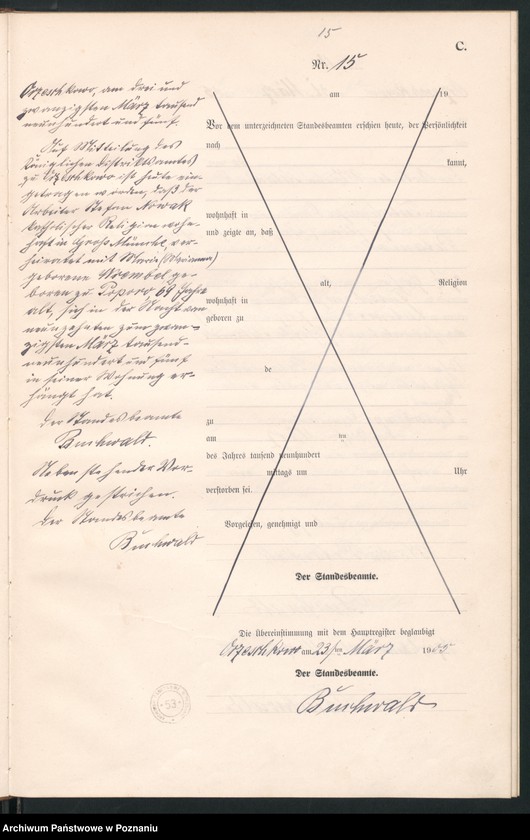 15
C.
Nr. 15
Orzeschkowo, am drei und
zwanzigsten März tausend
neunhundert und fünf.
Auf Mitteilung des
Königlichen Distriktsamtes
zu Orzeschkowo ist heute ein-
getragen worden, daß der
Arbeiter Stefan Nowak
katholischer Religion wohn-
haft in Groß Münche, ver-
heiratet mit Maria (Marianna)
geborene ge-
boren zu Popowo, 69 Jahre
alt, sich in der Nacht vom
neunzehnten zum zwan-
zigsten März tausend-
neunhundert und fünf
in seiner Wohnung er-
hängt hat.
Der Standesbeamte
Buchwald.
Nebenstehender Vor-
druck gestrichen.
Der Standesbeamte
Buchwald
am 19
Vor dem unterzeichneten Standesbeamten erschien heute, der Persönlichkeit
nach
kannt,
wohnhaft in
und zeigte an, daß
alt, Religion
wohnhaft in
geboren zu
de
zu
am ten
des Jahres tausend neunhundert
mittags um Uhr
verstorben sei.
Vorgelesen, genehmigt und
Der Standesbeamte.
Die Übereinstimmung mit dem Hauptregister beglaubigt
Orzeschkowo am 23ten März 1905
Der Standesbeamte.
Buchwald
53
Archiwum Państwowe w Poznaniu